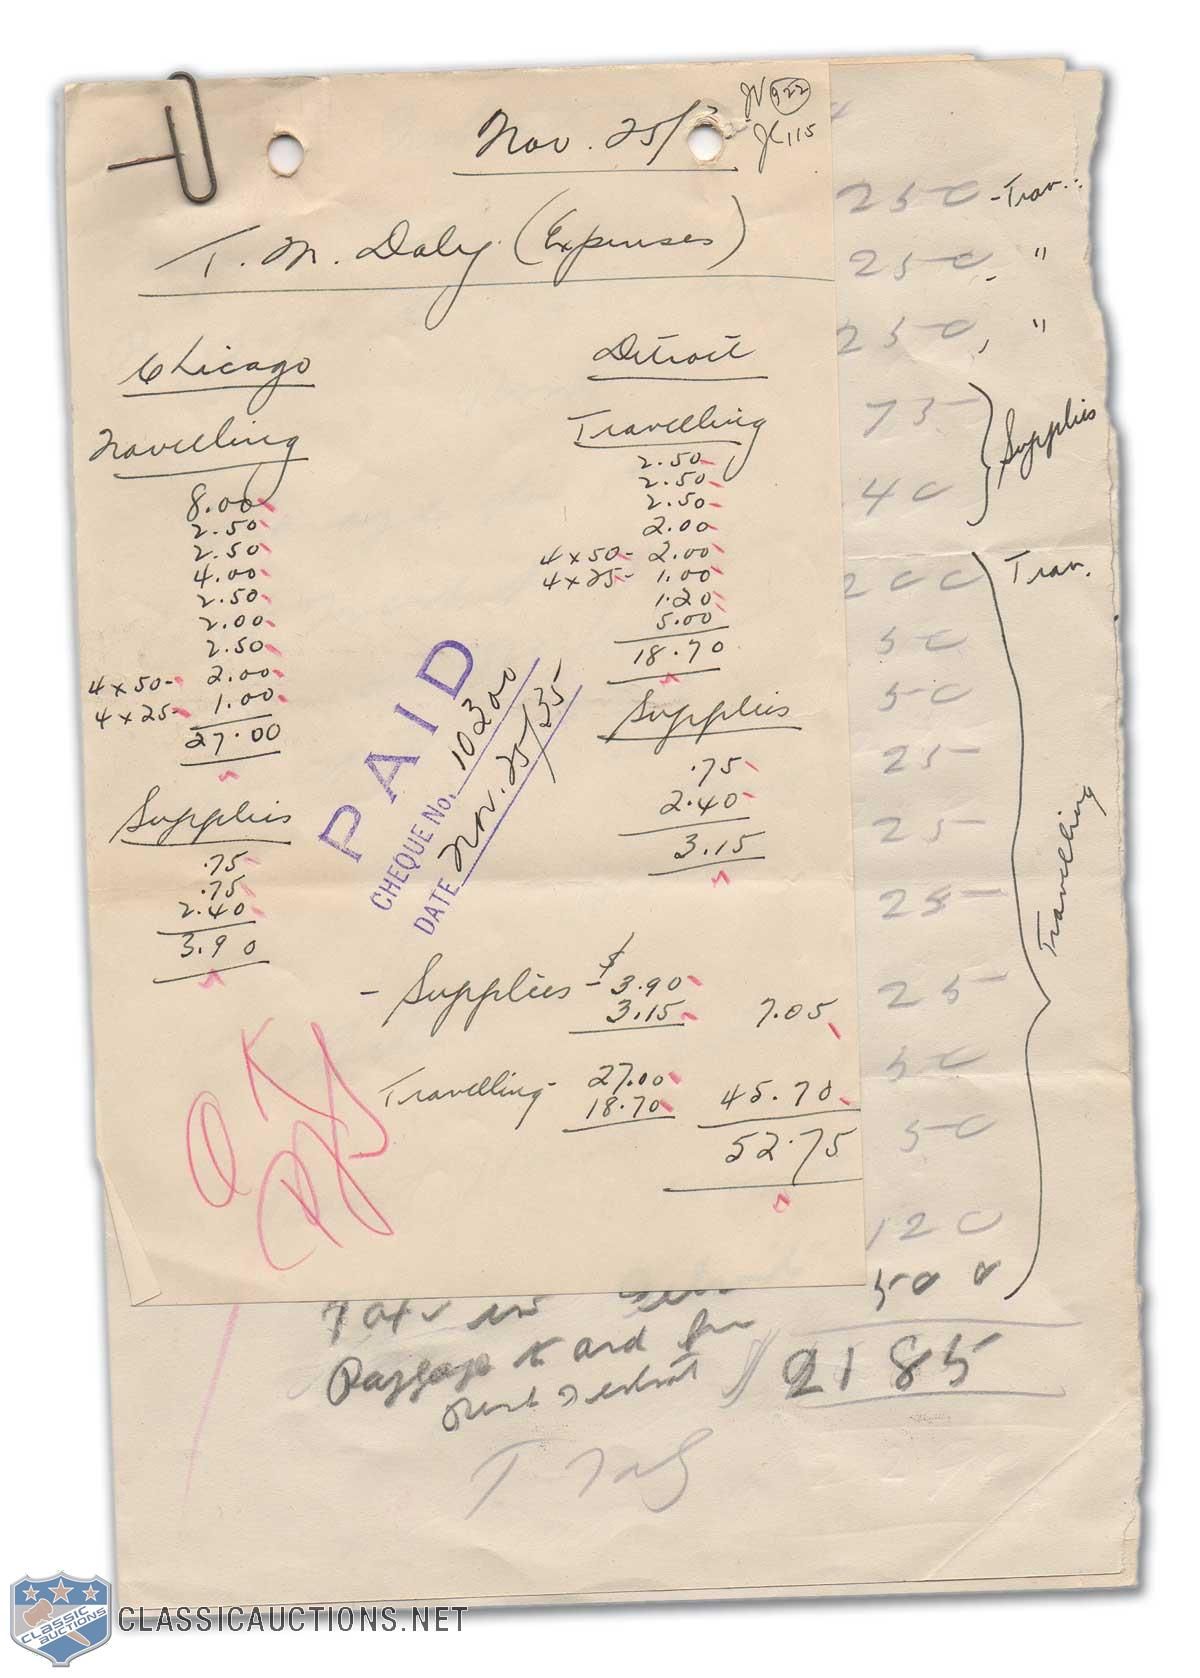 Nov. 25/
922
115
T. M. Daly (Expenses)
Chicago
Travelling
8.00
2.50
2.50
4.00
2.50
2.00
2.50
4 x 50- 2.00
4 x 25- 1.00
27.00
Supplies
.75
.75
2.40
3.90
Detroit
Travelling
2.50
2.50
2.50
2.00
4 x 50- 2.00
4 x 25- 1.00
1.20
5.00
18.70
Supplies
.75
2.40
3.15
PAID
CHEQUE No. 10300
DATE Nov. 25/35
- Supplies - $ 3.90
3.15 7.05
Travelling- 27.00
18.70 45.70
52.75
OK
250 - Tran.:
250 - "
250 , "
75
40
Supplies
200 Tran.
50
50
25
25
25
25
50
50
120
500
Travelling
2185
T Daly
CLASSIC AUCTIONS
CLASSICAUCTIONS.NET